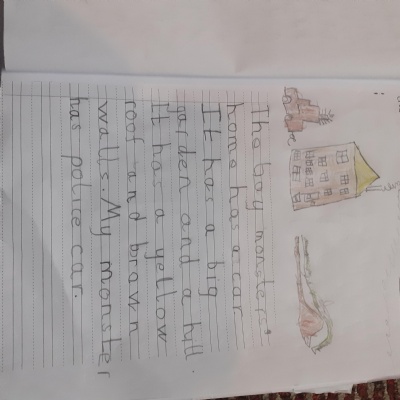 The boy monster's
home has a car
It has a big
garden and a hill.
It has a yellow
roof and brown
walls. My monster
has police car.